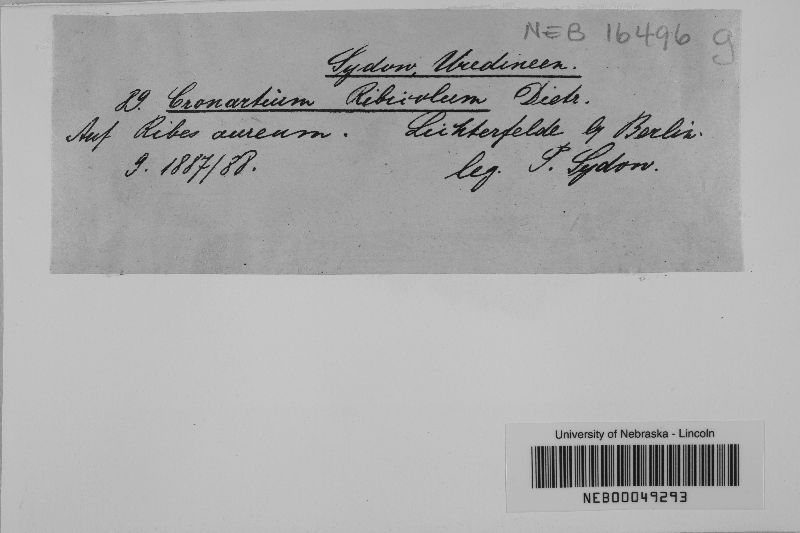 NEB 16496 g
Sydow, Uredineen.
29. Cronartium Ribicolum Dietr.
Auf Ribes aureum. Lichterfelde b/ Berlin.
9. 1887/88. leg. P. Sydow.
University of Nebraska - Lincoln
NEB00049293